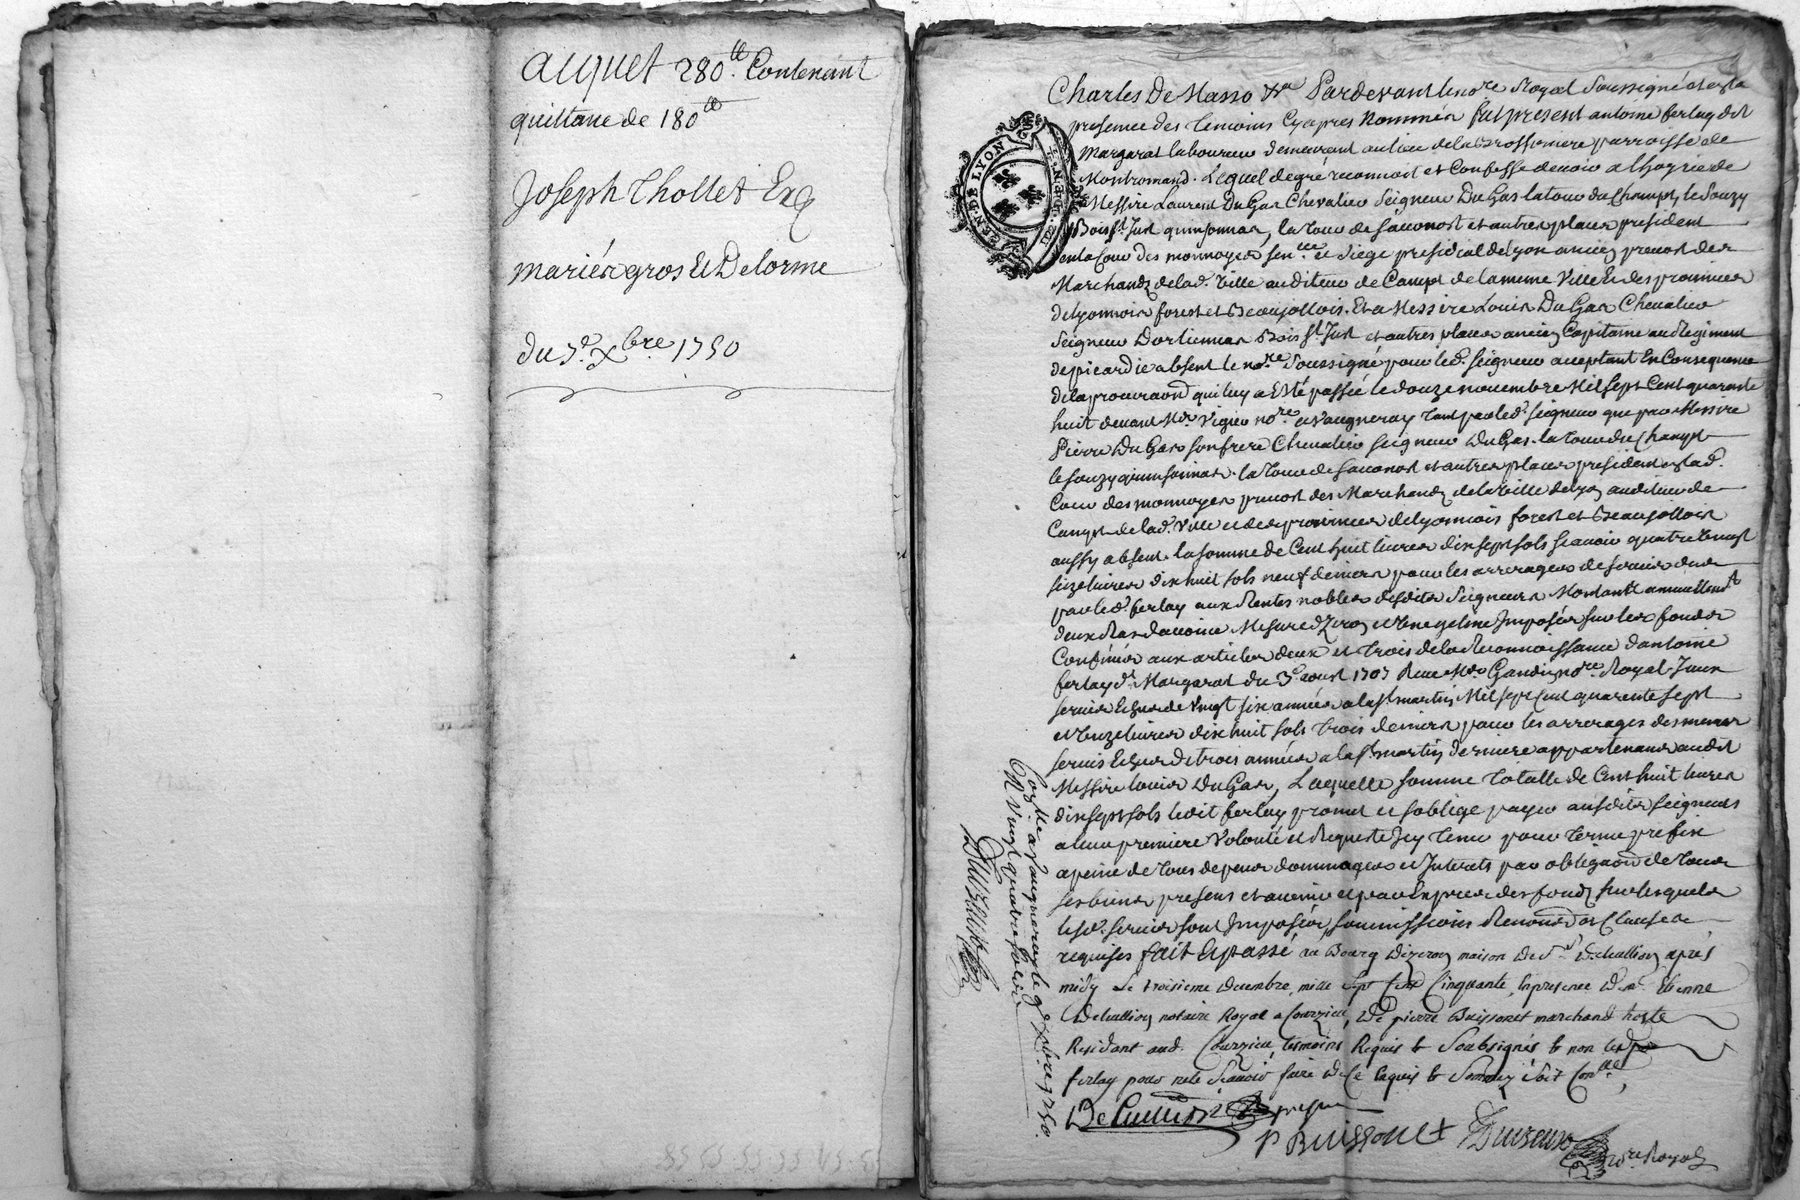 acquet 280.tt Contenant
quittance de 180tt
Joseph Thollet Ex
mariés gros Et Delorme
du 7.e Xbre 1750
Charles De Masso &a Pardevant le nore Royal Soussigné et en la
presence des temoins Cyapres Nommés fut present antoine ferlay dit
Margarat laboureur demeurant au lieu de la parroisse de
Montromand. Lequel de gré reconnoit et Confesse devoir a
Messire Laurent DuGas Chevalier Seigneur DuGas la tour du Champt, le Souzy
Bois St Just quinsonnas, la tour de Sauonost et autres places president
en la Cour des monnoyes sen.cée et siege presidial de Lyon ancien preuost des
Marchands de lad. Ville auditeur de Campt de la meme Ville Et des prouinces
de Lyonnois forest et Beaujollois. Et a Messire Louis DuGas Chevalier
Seigneur Dorlienas Bois St Just et autres places ancien Capitaine au Regiment
de picardie absent le nore Soussigné pour led. seigneur acceptant En Consequence
de la procuraon qui luy a Eté passée le douze novembre Mil Sept Cent quarante
huit devant Me Vigier nore a Vaugneray tant par led. seigneur que par Messire
Pierre DuGas son frere Chevalier Seigneur DuGas la tour du Champt
le souzy quinsonnas la tour de sauonost et autres places president en lad.
Cour des monnoyes preuost des Marchands de la ville de Lyon auditeur de
Campt de lad. Ville et des prouinces de Lyonnois forest et Beaujollois
aussy absent. la somme de Cent huit liures dix sept sols scauoir quatre vingt
seize liures dix huit sols neuf deniers pour les arrerages de seruis deus
par led. ferlay aux Rentes nobles desdits Seigneurs Montant annuellement
deux Ras d'auoine Mesure d'yzeron et une geline Imposés sur les fonds
Confinés aux articles deux et trois de la Reconnoissance d'antoine
ferlay dt Margarat du 3e aoust 1707 Reçue Me Gandin nore Royal Iceux
seruis Echus de vingt six années a la St martin Mil sept Cent quarente sept
et onze liures dix huit sols trois deniers pour les arrerages des memes
seruis Echus de trois années a la St martin derniere appartenans audit
Messire Louis DuGas, Laquelle somme totalle de Cent huit liures
dix sept sols ledit ferlay promet et s'oblige payer ausdits seigneurs
a leur premiere Volonté et Requeste Icy tenu pour terme prefix
a peine de tous depens dommages et Interets par obligaon de tous
ses biens presens et auenir et par Exprès des fonds sur lesquels
lesd. seruis sont Imposés, soumissions Renonçaons Clauses
requises fait Et passé au Bourg Dizeron maison de Sr Dechallion apres
midy Le troisieme decembre mille Sept Cent Cinquante En presence De Me Etienne
Dechallion notaire Royal a Courzieu, De pierre Buissonet marchand hoste
Residant aud. Courzieu, temoins Requis & Soubsignés & non led.
ferlay pour ne le Scauoir faire De Ce Enquis & Sommé Soit Conllé
P Buissonet
nore Royal
Conlle a Vaugneray le 9e Xbre 1750.
R vingt quatre sols